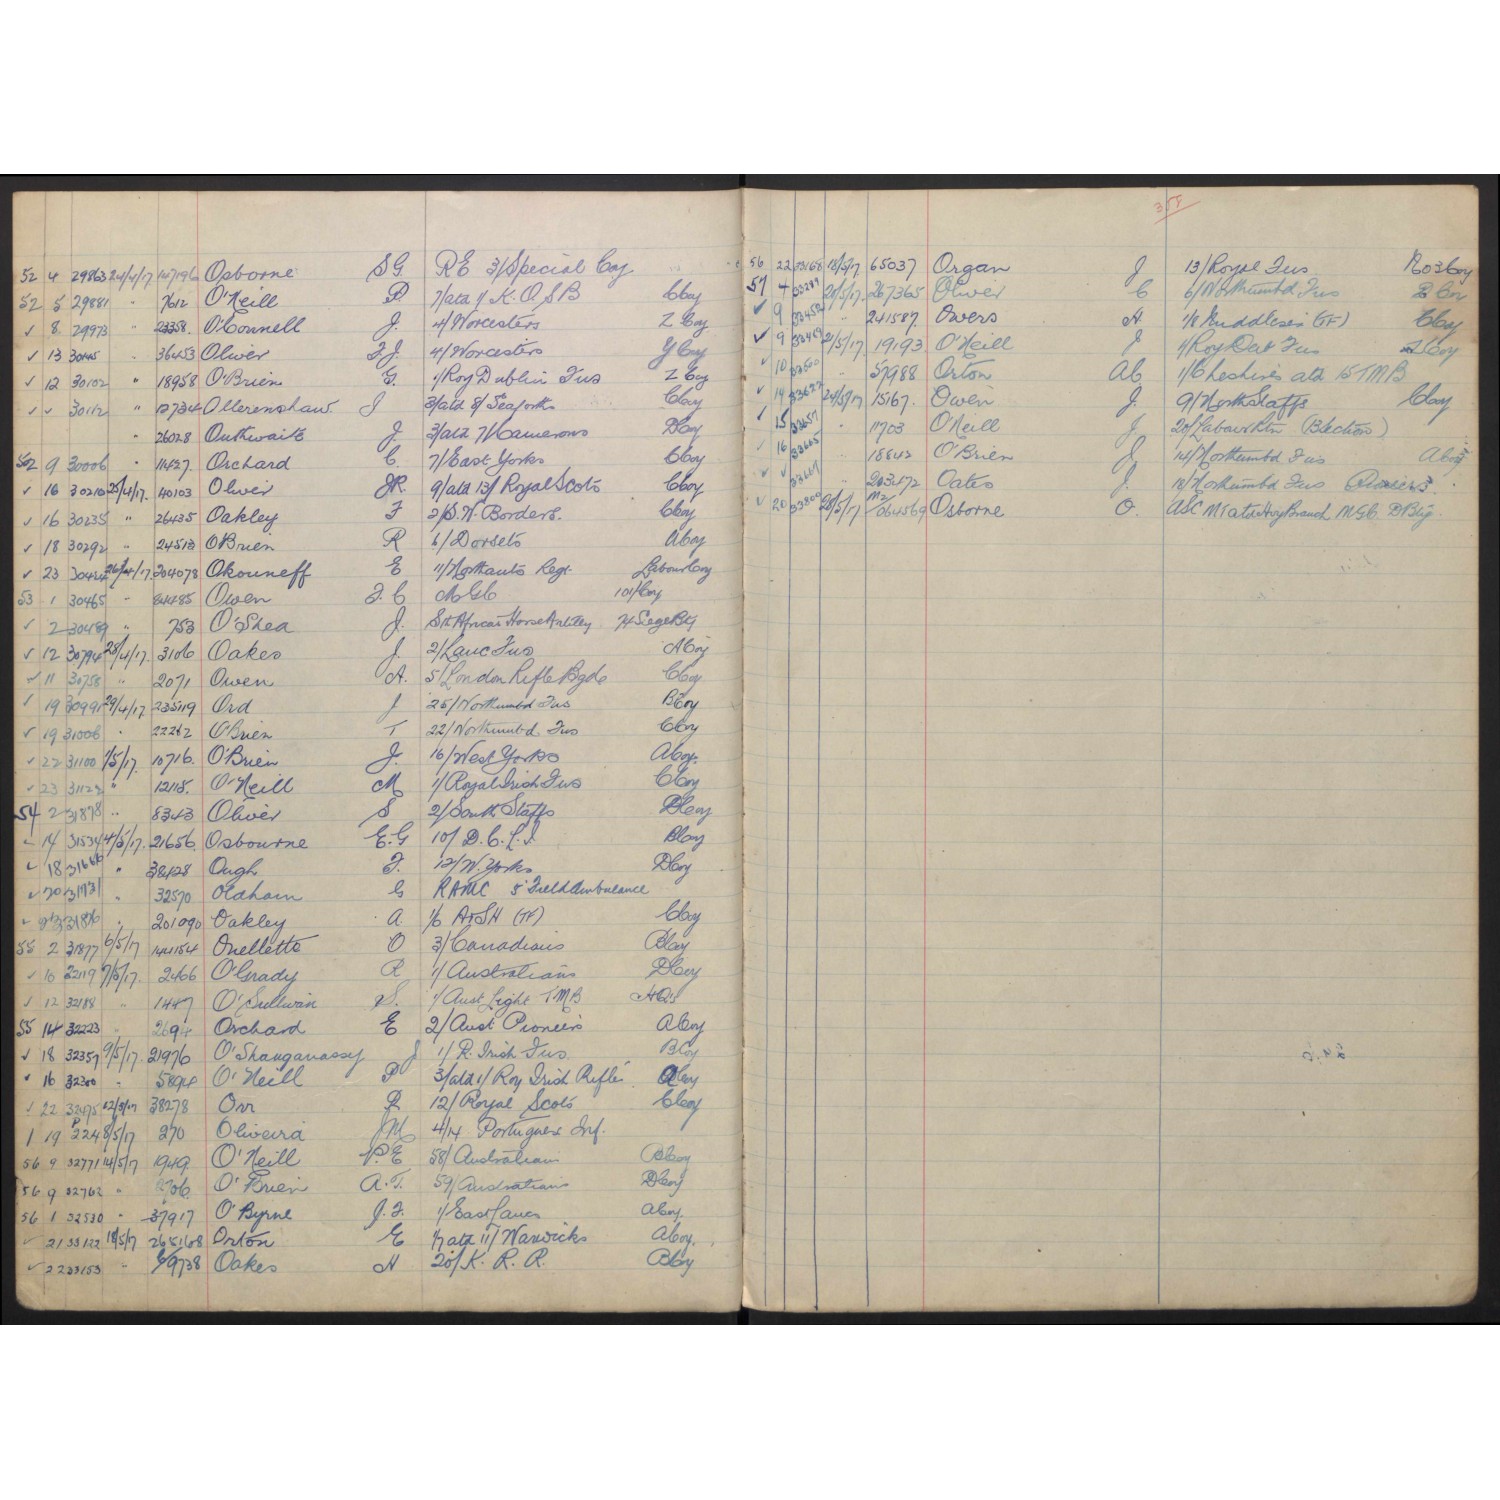 52 4 29863 24/4/17 147196 Osborne S G RE 3/Special Coy
52 5 29881 " 7612 O'Neill P. 7/atd 1/ K.O.S.B CCoy
✓ 8 29973 " 23358 O'Connell J. 4/Worcesters Z Coy
✓ 13 30145 " 36453 Oliver F.J. 4/Worcesters Y Coy
✓ 12 30102 " 18958 O'Brien G. 1/Roy Dublin Fus Z Coy
✓ ✓ 30112 " 12734 Ollerenshaw J 3/atd 8/ Seaforths CCoy
" 26028 Outhwaite J. 3/atd 7/Camerons DCoy
52 9 30006 " 11427 Orchard C. 7/East Yorks CCoy
✓ 16 30210 25/4/17 40103 Oliver JR 9/atd 13/ Royal Scots CCoy
✓ 16 30235 " 26435 Oakley F 2/S.W. Borders. CCoy
✓ 18 30292 " 24513 O'Brien R 6/Dorsets ACoy
✓ 23 30424 26/4/17 204078 Okouneff E 11/Northants Regt. Labour Coy
53 1 30465 " Owen F.C MGC 101/Coy
✓ 2 30489 " 753 O'Shea J. Sth African Horse Artilley 74 Siege Bty
✓ 12 30794 28/4/17 3106 Oakes J. 2/Lanc Fus ACoy
✓ 11 30758 " 2071 Owen A. 5/London Rifle Bgde CCoy
✓ 19 30991 29/4/17 235119 Ord J 25/Northumbd Fus BCoy
✓ 19 31006 " 22262 O'Brien T 22/Northumbd Fus CCoy
✓ 22 31100 1/5/17 10716 O'Brien J. 16/West Yorks ACoy.
✓ 23 31122 " 12115. O'Neill M 1/Royal Irish Fus CCoy
54 2 31878 " 8343 Oliver S 2/South Staffs DCoy
✓ 14 31534 4/5/17. 21656 Osbourne E.G 10/ D.C.L.I. BCoy
✓ 18 31666 " 38428 Ough F. 12/W. Yorks DCoy
✓ 20 31731 " 32570 Oldham G RAMC 5 Field Ambulance
✓ 23 31876 " 201090 Oakley A. 1/6 A&SH (TF) CCoy
55 2 31877 6/5/17 144154 Ouellette O 3/Canadians BCoy
✓ 10 32119 7/5/17. 2466 O'Grady R 1/Australians DCoy
✓ 12 32188 " 1447 O'Sullivan S. 1/Aust Light TMB HQrs
55 14 32223 " 2694 Orchard E 2/Aust Pioneers ACoy
✓ 18 32357 9/5/17. 21976 O'Shauganassy J 1/R. Irish Fus. BCoy
✓ 16 32300 " 5894 O'Neill P 3/atd 1/ Roy Irish Rifles ACoy
✓ 22 32475 12/5/17 38278 Orr R 12/Royal Scots CCoy
1 19 P 224 8/5/17 270 Oliveira J M 4/14 Portuguese Inf.
56 9 32771 14/5/17 1949 O'Neill P.E 58/Australians BCoy
56 9 32762 " 2706 O'Brien A.T. 59/Australians DCoy
56 1 32530 " 37917 O'Byrne J.F. 1/East Lancs ACoy.
✓ 21 33122 18/5/17 265168 Orton E 1/7 atd 11/ Warwicks ACoy.
✓ 22 33153 " 6/9738 Oakes H 20/K.R.R. BCoy
351
56 22 33168 18/5/17 65037 Organ J 13/Royal Fus No3Coy
57 4 33289 20/5/17. 267365 Oliver C 6/Northumbd Fus B Coy
✓ 9 33452 " 241587. Owers A 1/8 Middlesex (TF) CCoy
✓ 9 33469 21/5/17 19193. O'Neill J 1/Roy Dub Fus ZCoy
✓ 10 33500 " 57988 Orton AC 1/Cheshires atd 15 TMB
✓ 14 33622 24/5/17 15167. Owen J. 9/North Staffs CCoy
✓ 15 33657 " 11703 O'Neill J 20/Labour Btn (B Section)
✓ 16 33665 " 18842 O'Brien J 14/Northumbd Fus ACoy
✓ ✓ 33669 " 203472 Oates J. 14/Northumbd Fus Pioneers
✓ 20 33800 28/5/17 M2/064569 Osborne O. ASC MT atd Hvy Branch MGC. D Btn.